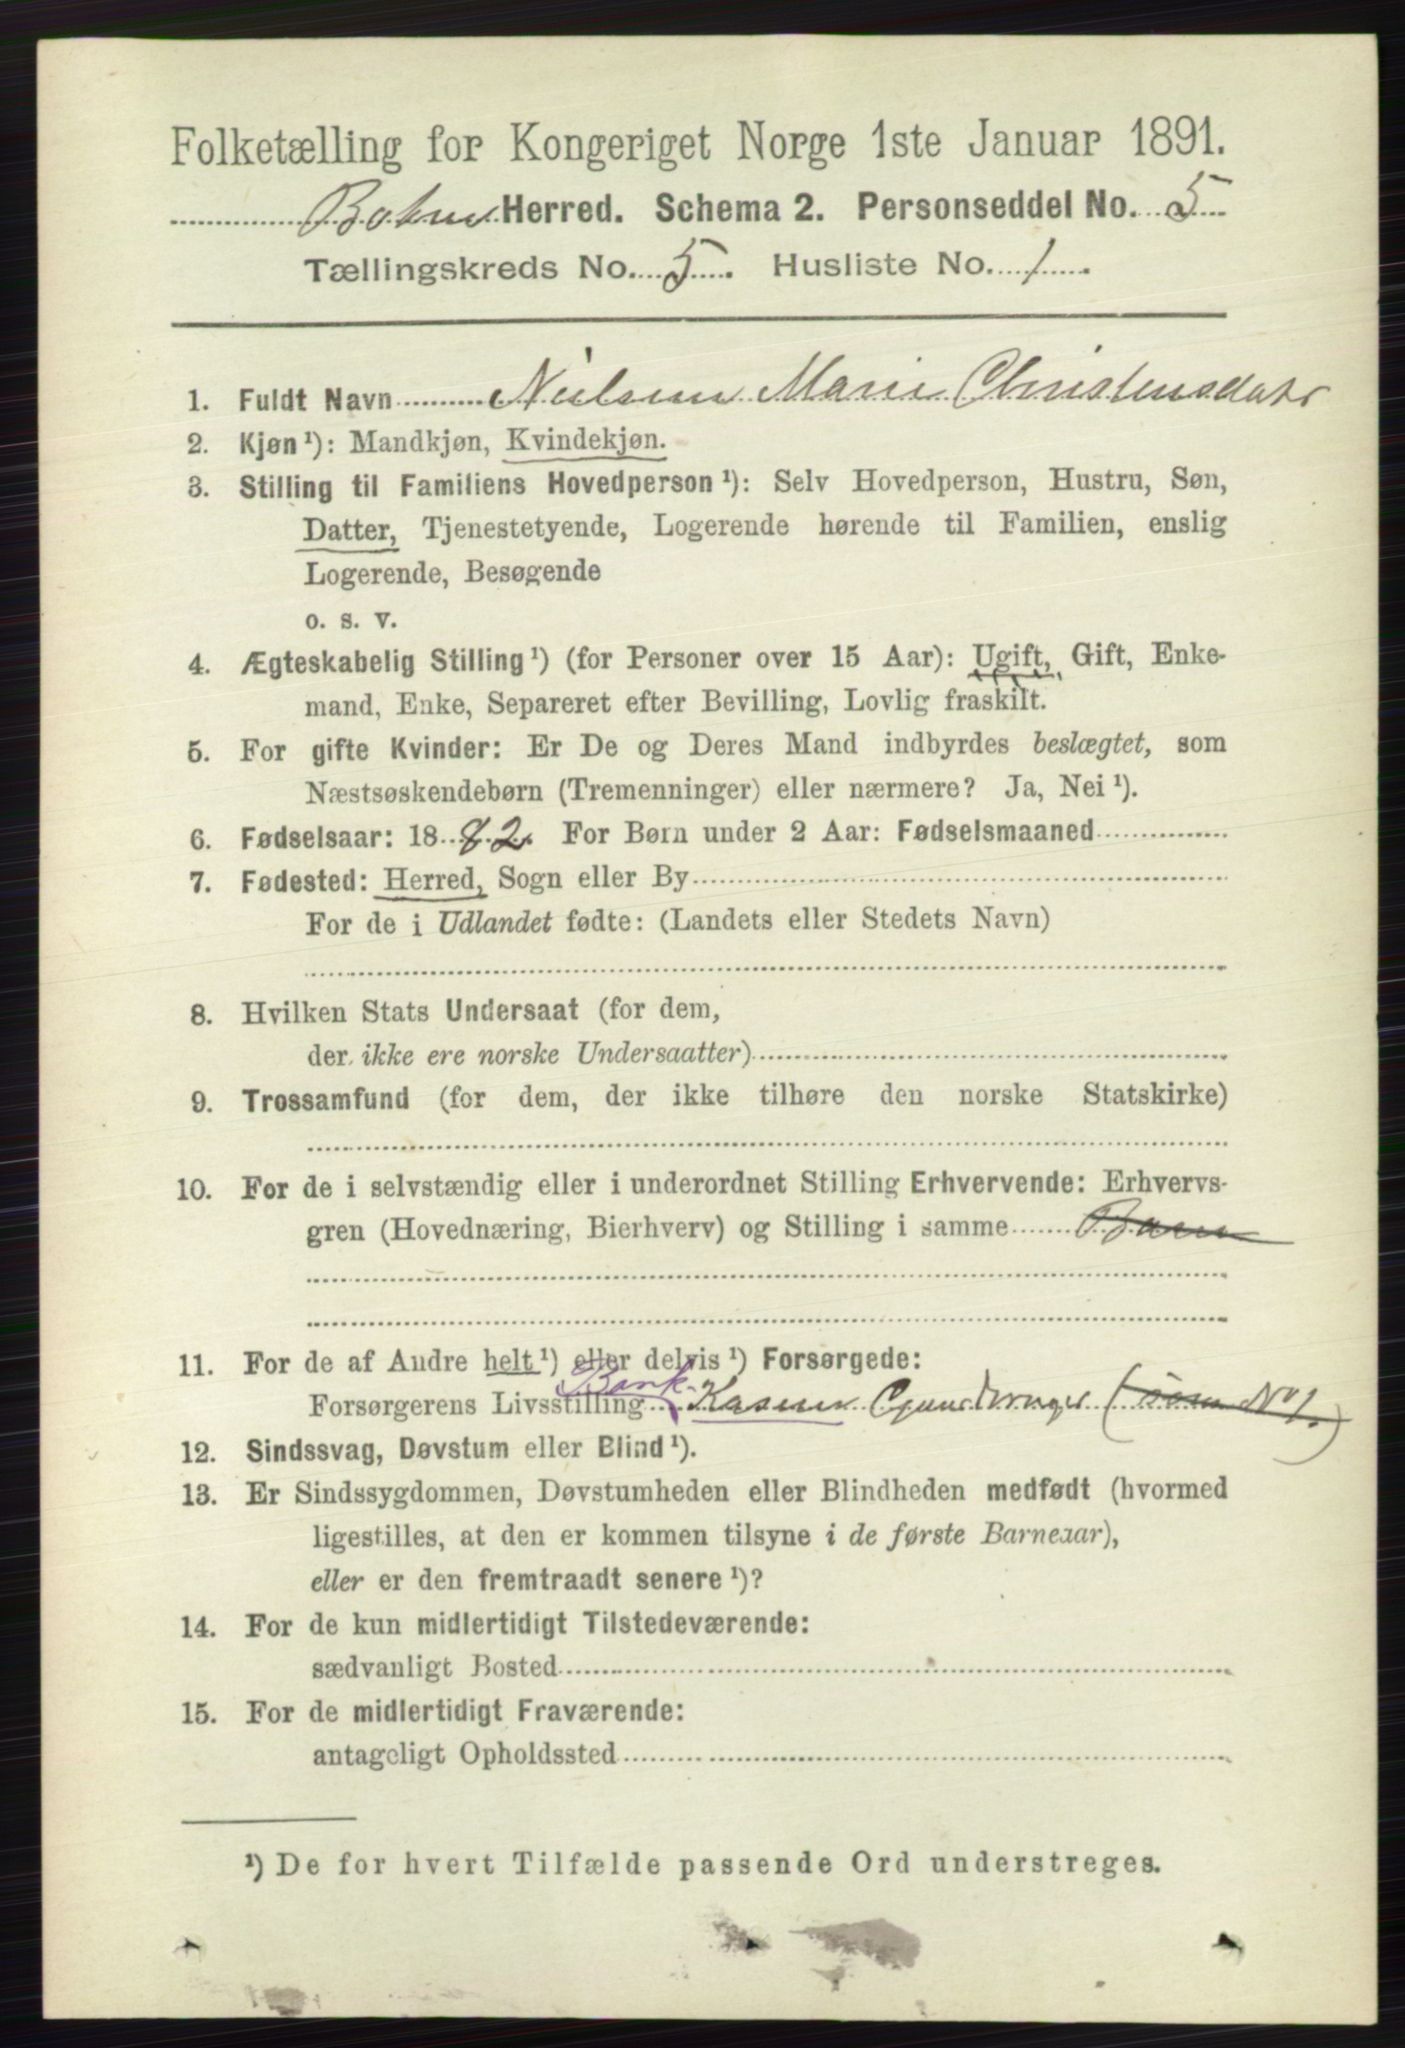 Folketælling for Kongeriget Norge 1ste Januar 1891.
Herred. Schema 2. Personseddel No. 5
Tællingskreds No. 5. Husliste No. 1
1. Fuldt Navn Nielsine Marie Christensdatr
2. Kjøn ¹): Mandkjøn, Kvindekjøn.
3. Stilling til Familiens Hovedperson ¹): Selv Hovedperson, Hustru, Søn,
Datter, Tjenestetyende, Logerende hørende til Familien, enslig
Logerende, Besøgende
o. s. v.
4. Ægteskabelig Stilling ¹) (for Personer over 15 Aar): Ugift, Gift, Enke-
mand, Enke, Separeret efter Bevilling, Lovlig fraskilt.
5. For gifte Kvinder: Er De og Deres Mand indbyrdes beslægtet, som
Næstsøskendebørn (Tremenninger) eller nærmere? Ja, Nei ¹).
6. Fødselsaar: 1882. For Børn under 2 Aar: Fødselsmaaned
7. Fødested: Herred, Sogn eller By
For de i Udlandet fødte: (Landets eller Stedets Navn)
8. Hvilken Stats Undersaat (for dem,
der ikke ere norske Undersaatter)
9. Trossamfund (for dem, der ikke tilhøre den norske Statskirke)
10. For de i selvstændig eller i underordnet Stilling Erhvervende: Erhvervs-
gren (Hovednæring, Bierhverv) og Stilling i samme Barn
11. For de af Andre helt ¹) eller delvis ¹) Forsørgede:
Forsørgerens Livsstilling Bank- (som No 1.)
12. Sindssvag, Døvstum eller Blind ¹).
13. Er Sindssygdommen, Døvstumheden eller Blindheden medfødt (hvormed
ligestilles, at den er kommen tilsyne i de første Barneaar),
eller er den fremtraadt senere ¹)?
14. For de kun midlertidigt Tilstedeværende:
sædvanligt Bosted
15. For de midlertidigt Fraværende:
antageligt Opholdssted
¹) De for hvert Tilfælde passende Ord understreges.